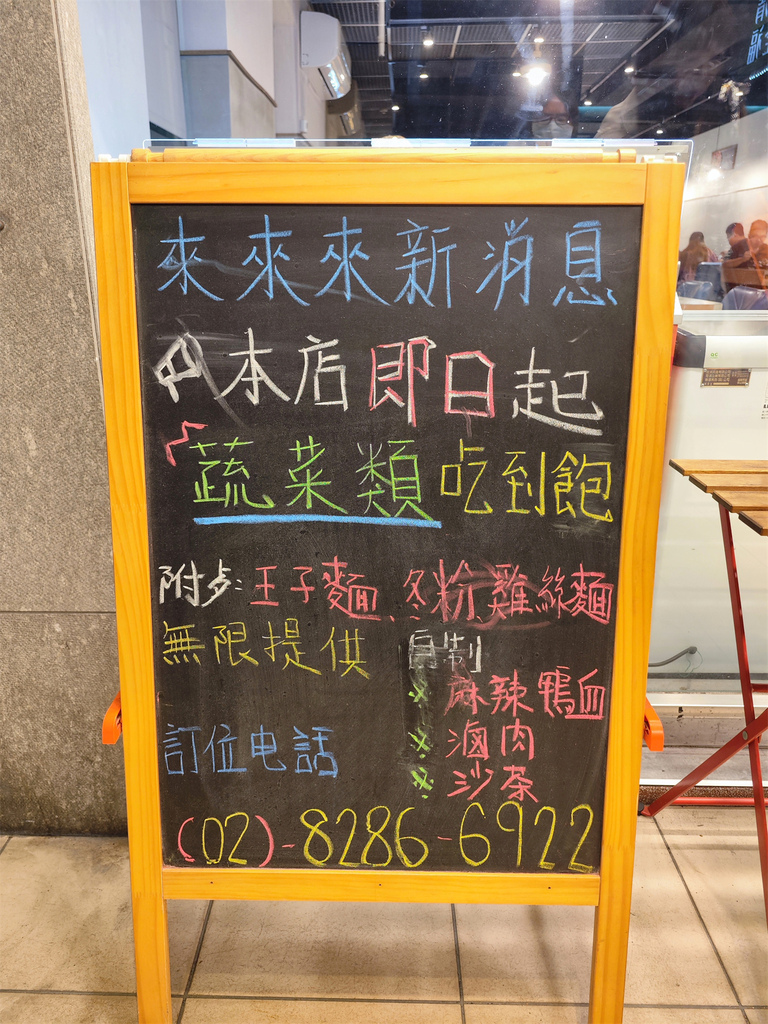 來來來新消息
本店即日起
蔬菜類吃到飽
附步:王子麵、冬粉、雞絲麵
無限提供
自制
※麻辣鴨血
※滷肉
※沙茶
訂位电話
(02)-8286-6922